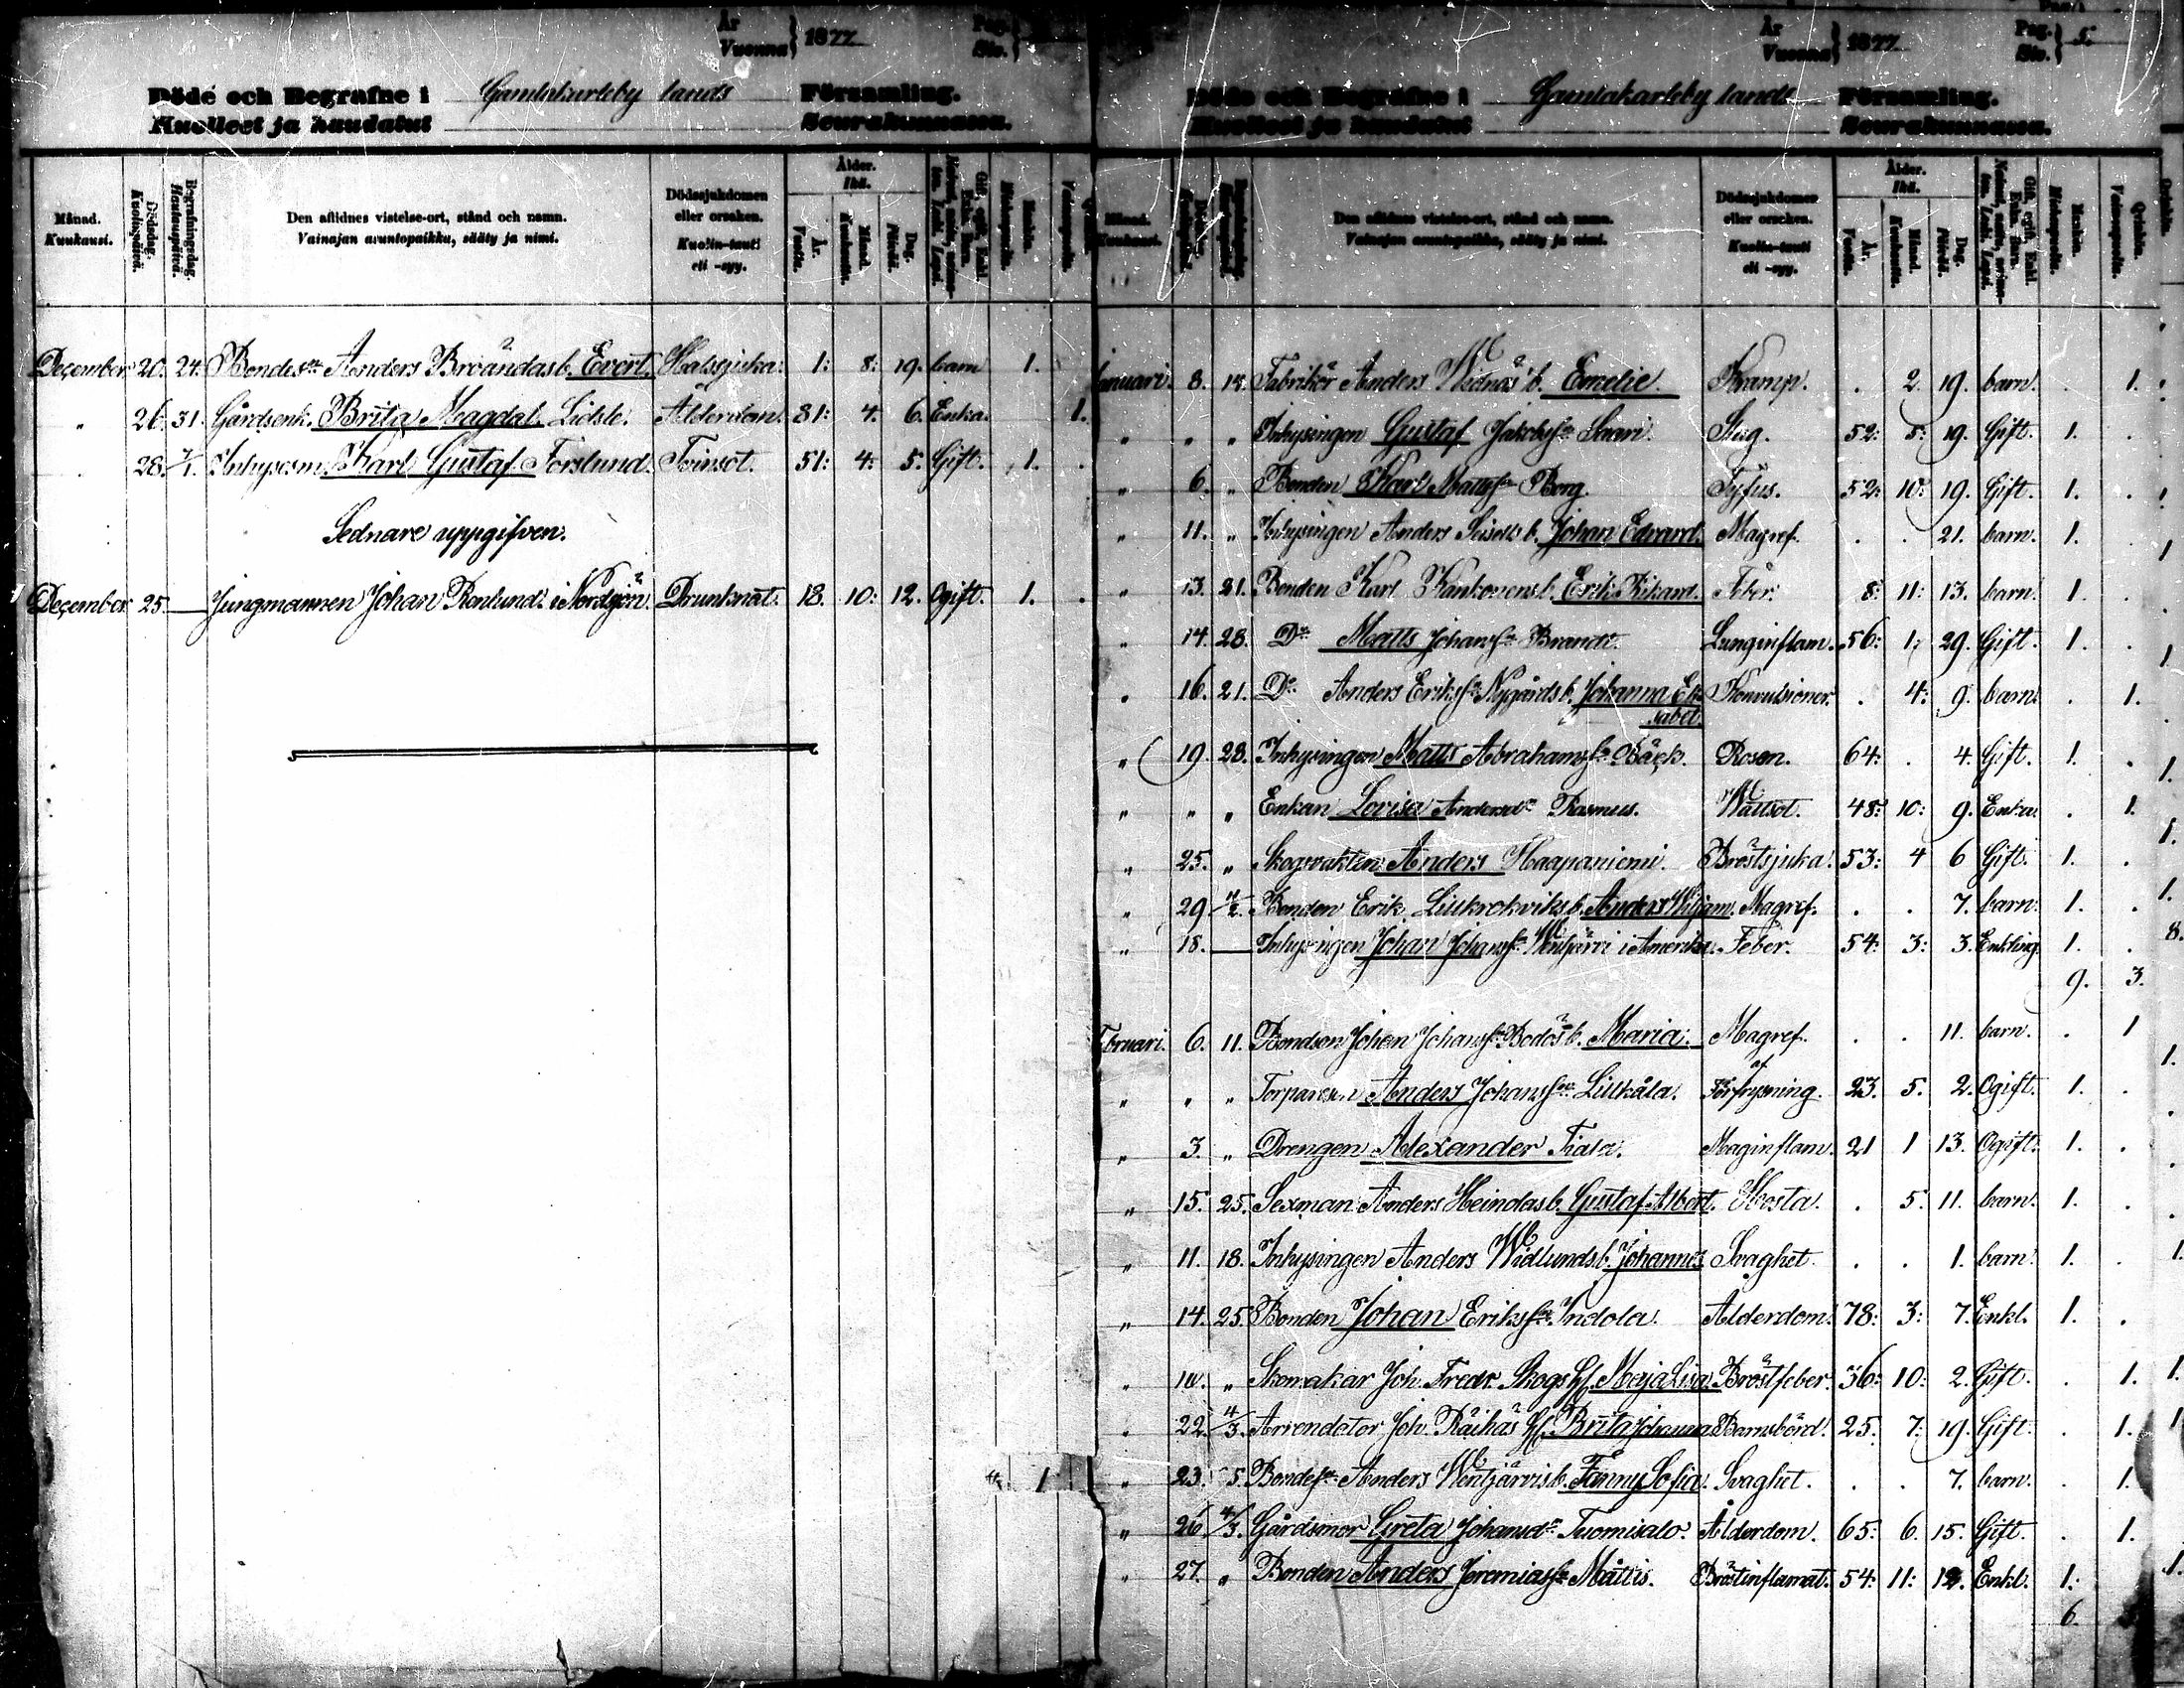 År Vuonna } 1877
Pag. Siv. }
Döde och Begrafne i Gamlakarleby lands Församling.
Kuolleet ja haudatut Seurakunnassa.
Månad. Kuukausi.
Dödsdag. Kuolinpäivä.
Begrafningsdag. Hautauspäivä.
Den aflidnes vistelse-ort, stånd och namn.
Vainajan asuntopaikka, sääty ja nimi.
Dödssjukdomen eller orsaken.
Kuolin-tauti eli -syy.
Ålder. Ikä.
År. Vuotta.
Månad. Kuukautta.
Dag. Päivää.
December. 20. 24. Bondes:n Anders Broändas b. Evert. Halssjuka. 1: 8: 19. barn 1.
" 26. 31. Gårdsenk. Brita Magdal. Lidsle. Ålderdom. 81: 4. 6. Enka. 1.
28. 7/1. Inhysesm. Karl Gustaf Forslund. Tvinsot. 51: 4: 5. Gift. 1.
Sednare uppgifven.
December 25. — Jungmannen Johan Renlund i Nordsjön. Drunknat. 18. 10: 12. Ogift. 1.
1
År Vuonna } 1877
Pag. Siv. } 5.
Döde och Begrafne i Gamlakarleby lands Församling.
Kuolleet ja haudatut Seurakunnassa.
Månad. Kuukausi.
Den aflidnes vistelse-ort, stånd och namn.
Vainajan asuntopaikka, sääty ja nimi.
Dödssjukdomen eller orsaken.
Kuolin-tauti eli -syy.
Ålder. Ikä.
År. Vuotta.
Månad. Kuukautta.
Dag. Päivää.
Januari. 8. 14. Fabrikör Anders Widnäs' b. Emelie. Kramp. . 2. 19. barn. . 1.
" " " Inhysingen Gustaf Jakobss:n Saari. Slag. 52: 5: 19. Gift. 1. .
" 6. " Bonden Karl Mattss:n Borg. Tyfus. 52: 10: 19. Gift. 1. .
" 11. " Inhysingen Anders b. Johan Edvard. Magref. . . 21. barn. 1. .
" 13. 21. Bonden Karl Kankonens b. Erik Rikard. Feber. 8: 11: 13. barn. 1. .
" 14. 28. D:o Matts Johanss:n Brandt. Lunginflam. 56: 1: 29. Gift. 1. .
" 16. 21. D:o Anders Erikss:n Nygårds b. Johanna Eli-
sabet. Konvulsioner. . 4: 9. barn. . 1.
" 19. 28. Inhysingen Matts Abrahamss:n Bäck. Rosen. 64: . 4. Gift. 1. .
" " " Enkan Lovisa Andersd:r Rasmus. Wattsot. 48: 10: 9. Enka. . 1.
" 25. " Skogsvakten Anders Haapaniemi. Bröstsjuka. 53: 4 6 Gift. 1. .
" 29 11/2. Bonden Erik Lillkrokviks b. Anders Wiljam. Magref. . . 7. barn. 1. .
" 18. — Inhysingen Johan Johanss:n Wentjärvi i Amerika. Feber. 54: 3: 3. Enkling 1. .
9. 3.
Februari. 6. 11. Bondson Johan Johanss:n Bodös b. Maria. Magref. . . 11. barn. . 1
" " " Torparesn Anders Johanss:n Lillkåla. af Förfrysning. 23. 5. 2. Ogift. 1. .
" 3. " Drengen Alexander Fiala. Maginflam. 21 1 13. Ogift. 1. .
" 15. 25. Sexman Anders Heindas b. Gustaf Albert. Hosta. . 5. 11. barn. 1. .
" 11. 18. Inhysingen Anders Widlunds b. Johannes Svaghet. . . 1. barn. 1. .
" 14. 25. Bonden Johan Erikss:n Indola. Alderdom. 78: 3: 7. Enkl. 1. .
" 14. " Skomakar Joh. Fredr. Skogs H. Maja Lisa. Bröstfeber. 36: 10: 2. Gift. . 1.
" 22. 4/3. Arrendator Joh. Räihäs H. Brita Johanna. Barnsbörd. 25. 7: 19. Gift. . 1.
" 23. 5. Bondes:n Anders Wentjärvis b. Fanny Sofia. Svaghet. . . 7. barn. . 1.
" 26. 4/3. Gårdsmor Greta Johansd:r Tuomisalo. Ålderdom. 65: 6. 15. Gift. . 1.
" 27. " Bonden Anders Jeremiass:n Mattis. Bröstinflamat. 54: 11: 12. Enkl. 1.
6.